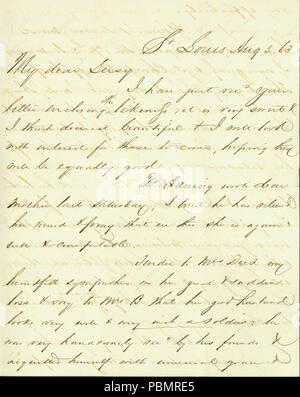 St Louis Aug 5, 63
My dear Sissy
I have just recd your
letter enclosing the likeness, it is very sweet &
I think dearest beautiful & I will look
with interest for those to come, hoping they
will be equally good.
Dr Taussig wrote dear
Mother last Saturday, I trust he has relieved
her mind & that in this she is again
well & comfortable.
Tender to Mrs Dred my
heartfelt sympathies in her great & sudden
loss & say to Mrs B that her good husband
looks very well & very not a soldier; he
was very handsomely recd by his friends &
acquitted himself with unusual grace &
alamy
Image ID: PBMRE5
www.alamy.com